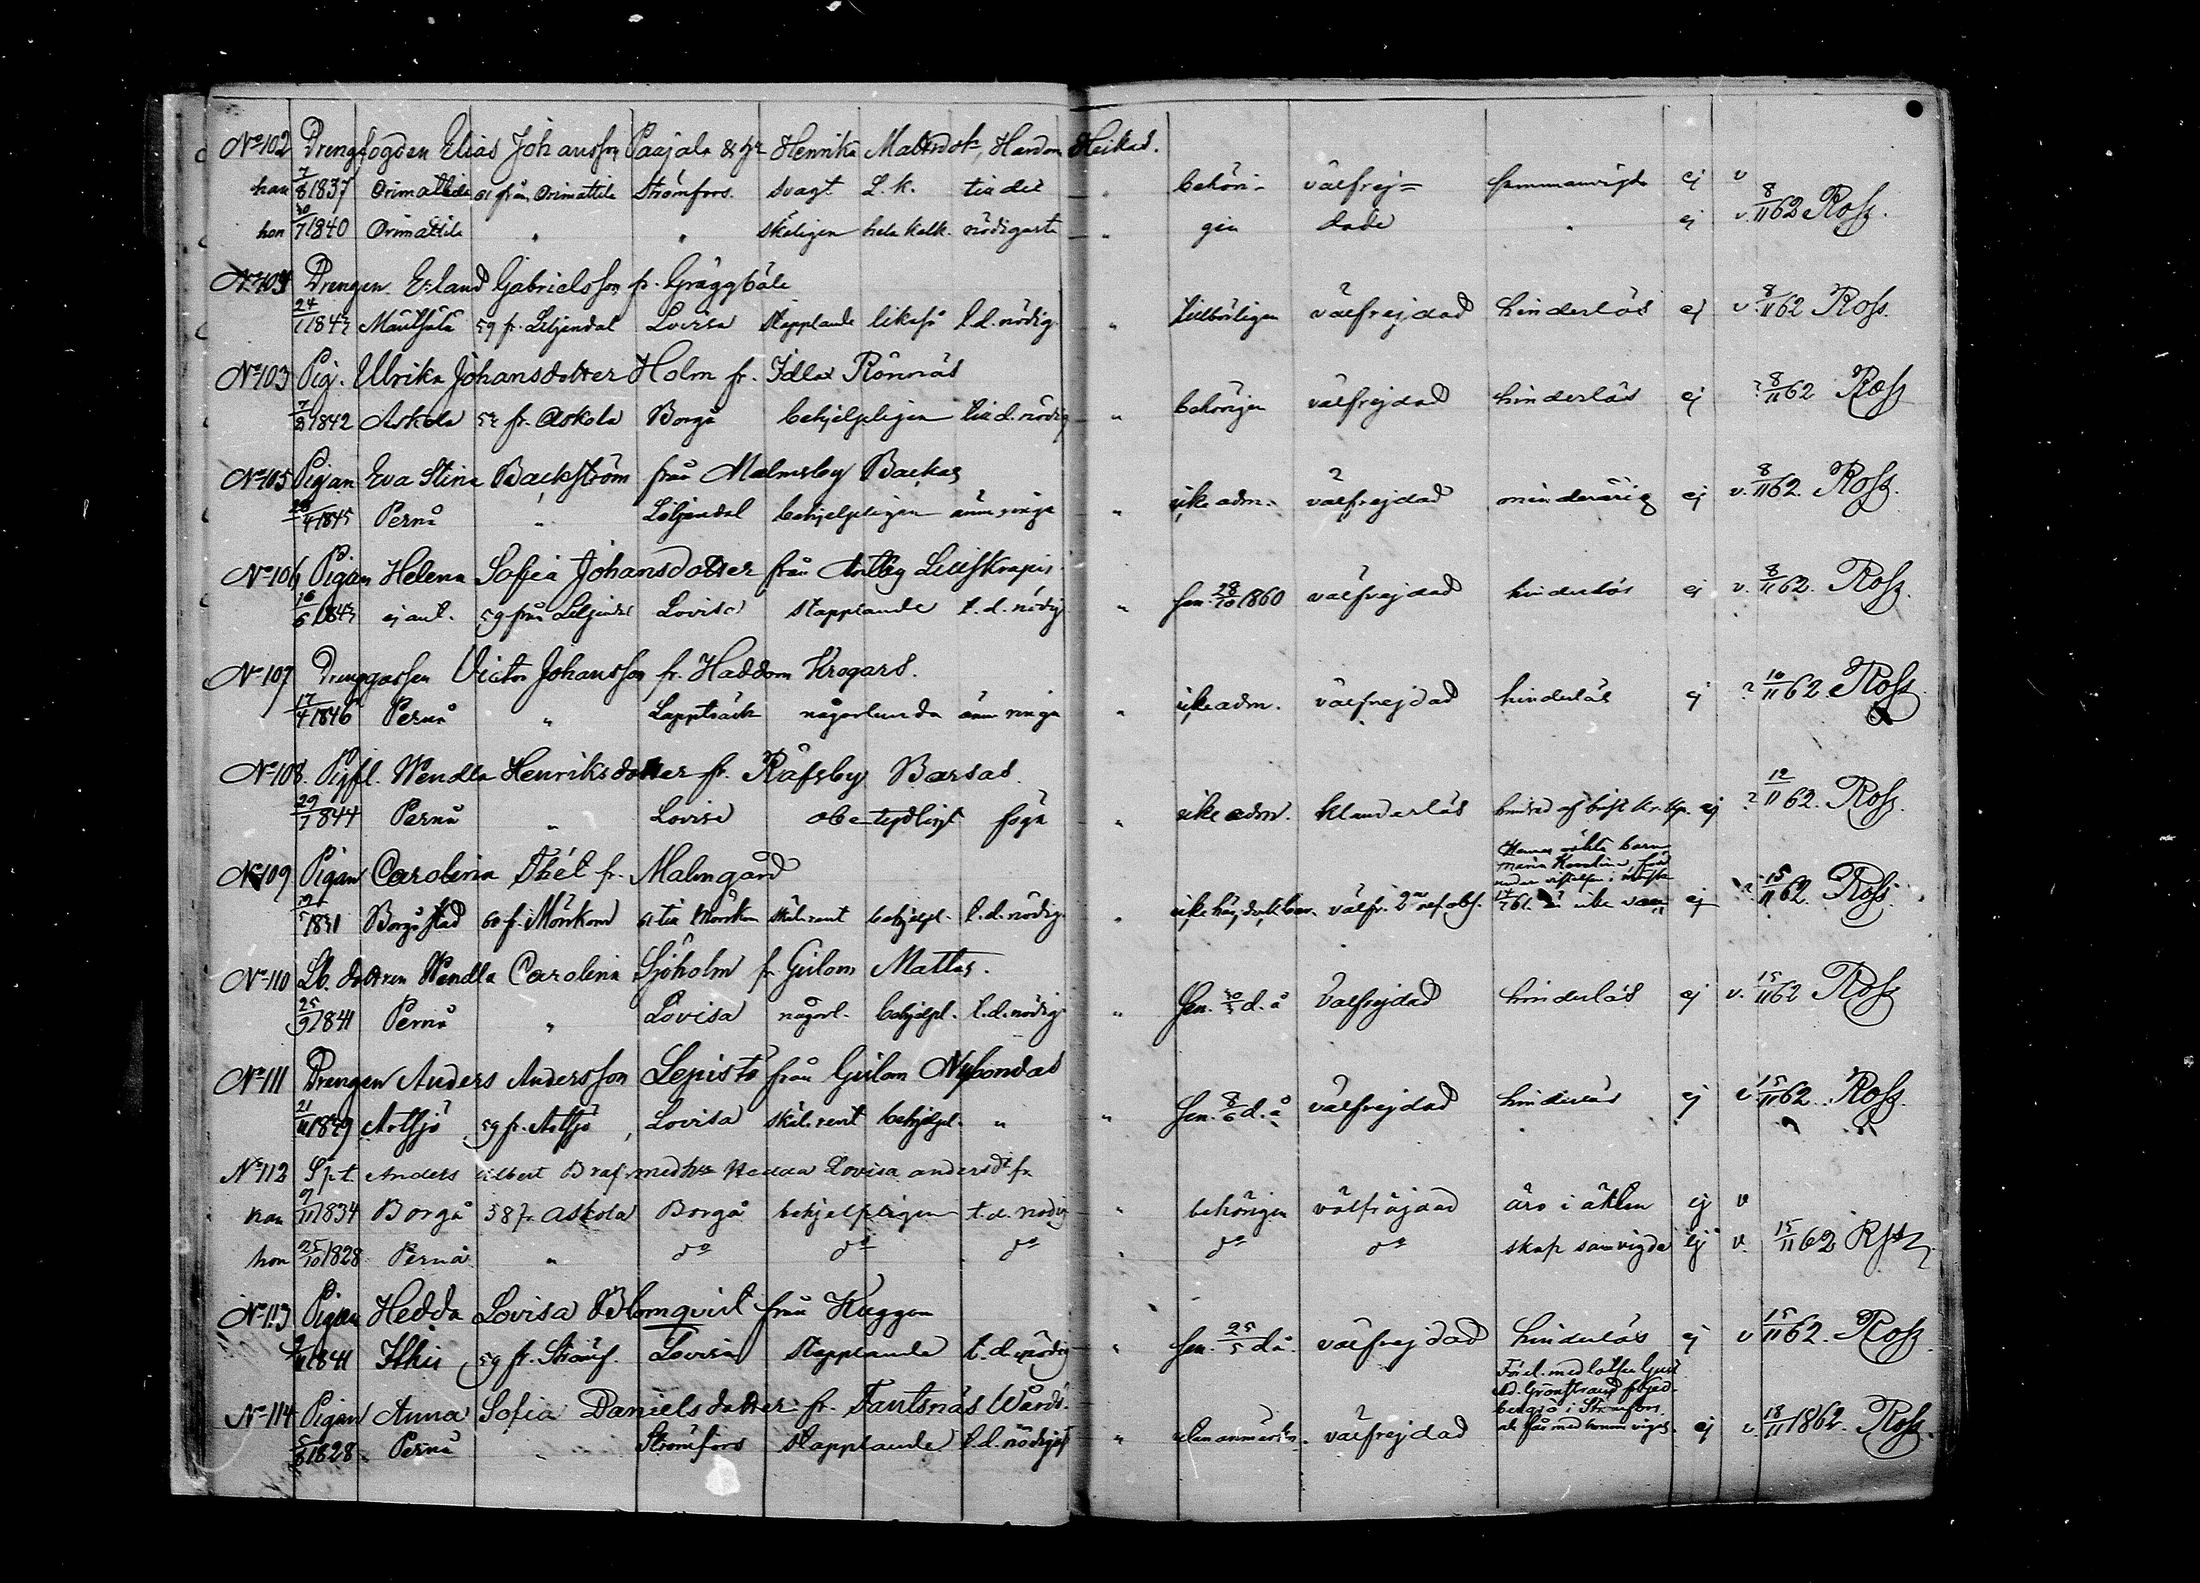 No 102 Drengfogden Elias Johansson Paajala & h. Henrika Mattsdotr, Hardom Heikas.
han 7/8 1837 Orimattila 61 från Orimattila Strömfors. svagt L. k. till det " behöri- välfrej= sammanvigde ej v
hon 30/7 1840 Orimattila " " skäligen hela katk. nödigaste " gen dade " ej v. 8/11 62 Ross.
No 104 Drengen Erland Gabrielsson fr. Gräggböle
24/1 1843 Mäntsälä 59 fr. Liljendal Lovisa stapplande likaså t.d. nödig. " tillbörligen välfrejdad hinderlös ej v. 8/11 62 Ross.
No 103 Pig. Ulrika Johansdotter Holm fr. Idlax Rönnäs
7/2 1842 Askola 52 fr. Askola Borgå behjelpligen till d. nödig " behörigen välfrejdad hinderlös ej 8/11 62 Ross
No 105 Pigan Eva Stina Backström från Malmsby Backas
/4 1845 Pernå " Liljendal behjelpligen ännu ringa " icke adm. välfrejdad minderårig ej v. 8/11 62. Ross.
No 106 Pigan Helena Sofia Johansdotter från Antby
16/6 1843 ej ant. 59 från Liljendal Lovisa stapplande t. d. nödig " sen. 28/10 1860 välfrejdad hinderlös ej v. 8/11 62. Ross.
No 107 Drenggossen Victor Johansson fr. Haddom Krogars.
17/4 1846 Pernå " Lappträsk någorlunda ännu ringa " icke adm. välfrejdad hinderlös ej 10/11 62 Ross
No 108. Pigfl. Wendla Henriksdotter fr. Räfsby Barsas
29/1 1844 Pernå " Lovisa obetydligt föga " icke adm. klanderlös hindrad af brist kr. ej 12/11 62. Ross.
No 109 Pigan Carolina Thél fr. Malmgård
1831 Borgå stad 60 f. Mörskom 61 till Mörskom skäl. rent behjelpl. t. d. nödig. " icke välfr. 2 ej 15/11 62. Ross.
Hennes oäkta barn
Maria Karolina, född
under vistelsen i
är icke vacc.
No 110 Lb. dottren Wendla Carolina Sjöholm fr. Gislom Mattas.
25/9 1841 Pernå " Lovisa någorl. behjelpl. t. d. nödig " sen. d. å välfrejdad hinderlös ej v. 15/11 62 Ross
No 111 Drengen Anders Andersson Lepistö från Gislom Nybondas
21/11 1839 Artsjö 59 fr. Artsjö Lovisa skäl. rent behjelpl. " " sen. 8/6 d. å välfrejdad hinderlös ej v 15/11 62. Ross.
No 112 Spt Anders Albert Braf med h. Hedda Lovisa andersdr fr.
han 9/11 1834 Borgå 58 fr. Askola Borgå behjelpligen t. d. nödig " behörigen välfräjdad äro i äkten ej v
hon 25/10 1828 Pernå " do do do " do do skap samvigda ej v. 15/11 62 Ross.
No 113 Pigan Hedda Lovisa Blomqvist från Kuggom
1841 Itthis 59 fr. Strömf. Lovisa stapplande t. d. nödig " sen. 25/5 d. å. välfrejdad hinderlös ej v 15/11 62. Ross
No 114 Pigan Anna Sofia Danielsdotter fr. Tantsnäs Wårds.
5/8 1828. Pernå " Strömfors stapplande t. d. nödigst " utan anmärkn. välfrejdad ej v. 18/11 1862. Ross.
Förel. med lotsen Gust.
Ad. Grönstrand fr.
i Strömfors
får med honom vigas